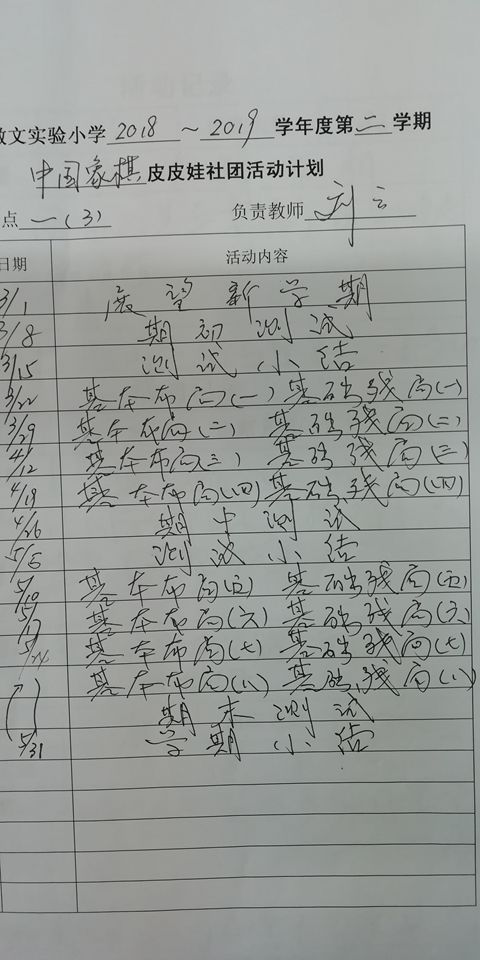 文实验小学 2018 ~ 2019 学年度第 二 学期
中国象棋 皮皮娃社团活动计划
点 一(3) 负责教师 刘云
日期 活动内容
3/1 展望新学期
3/8 期初测试
3/15 测试小结
3/22 基本布局(一) 基础残局(一)
3/29 基本布局(二) 基础残局(二)
4/12 基本布局(三) 基础残局(三)
4/19 基本布局(四) 基础残局(四)
4/26 期中测试
5/5 测试小结
5/10 基本布局(五) 基础残局(五)
5/17 基本布局(六) 基础残局(六)
5/24 基本布局(七) 基础残局(七)
基本布局(八) 基础残局(八)
期末测试
5/31 学期小结